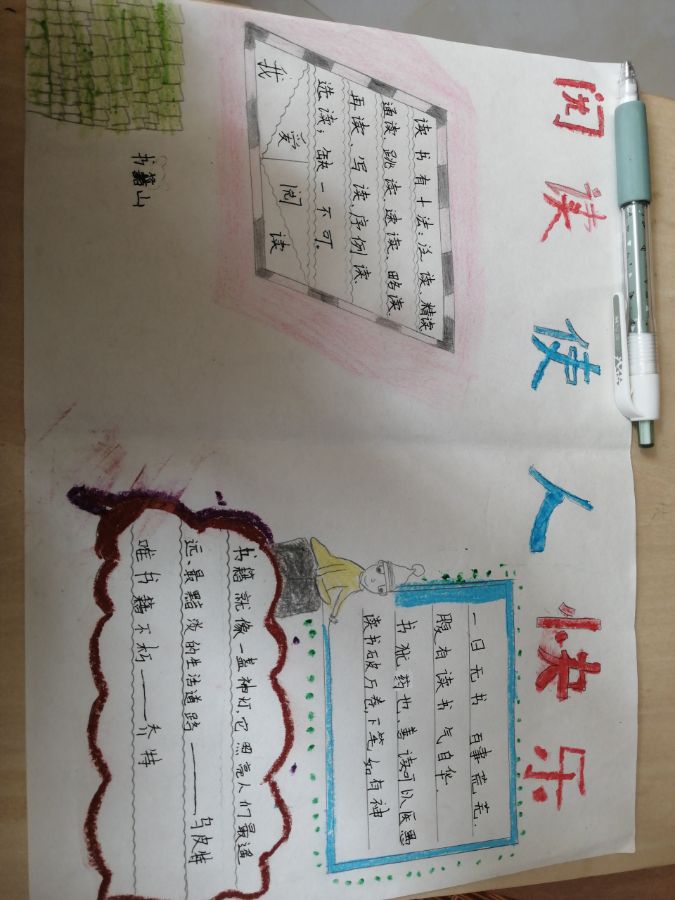 阅读使人快乐
读书有十法：泛读、精读
通读、跳读、速读、略读、
再读、写读、序例读、
选读；缺一不可。
我爱阅读
书籍山
一日无书 百事荒芜.
腹有读书气自华.
书犹药也、善读可以医愚
读书破万卷、下笔如有神
书籍就像一盏神灯，它照亮人们最遥
远、最黯淡的生活道路——乌皮特
唯书籍不朽——乔特